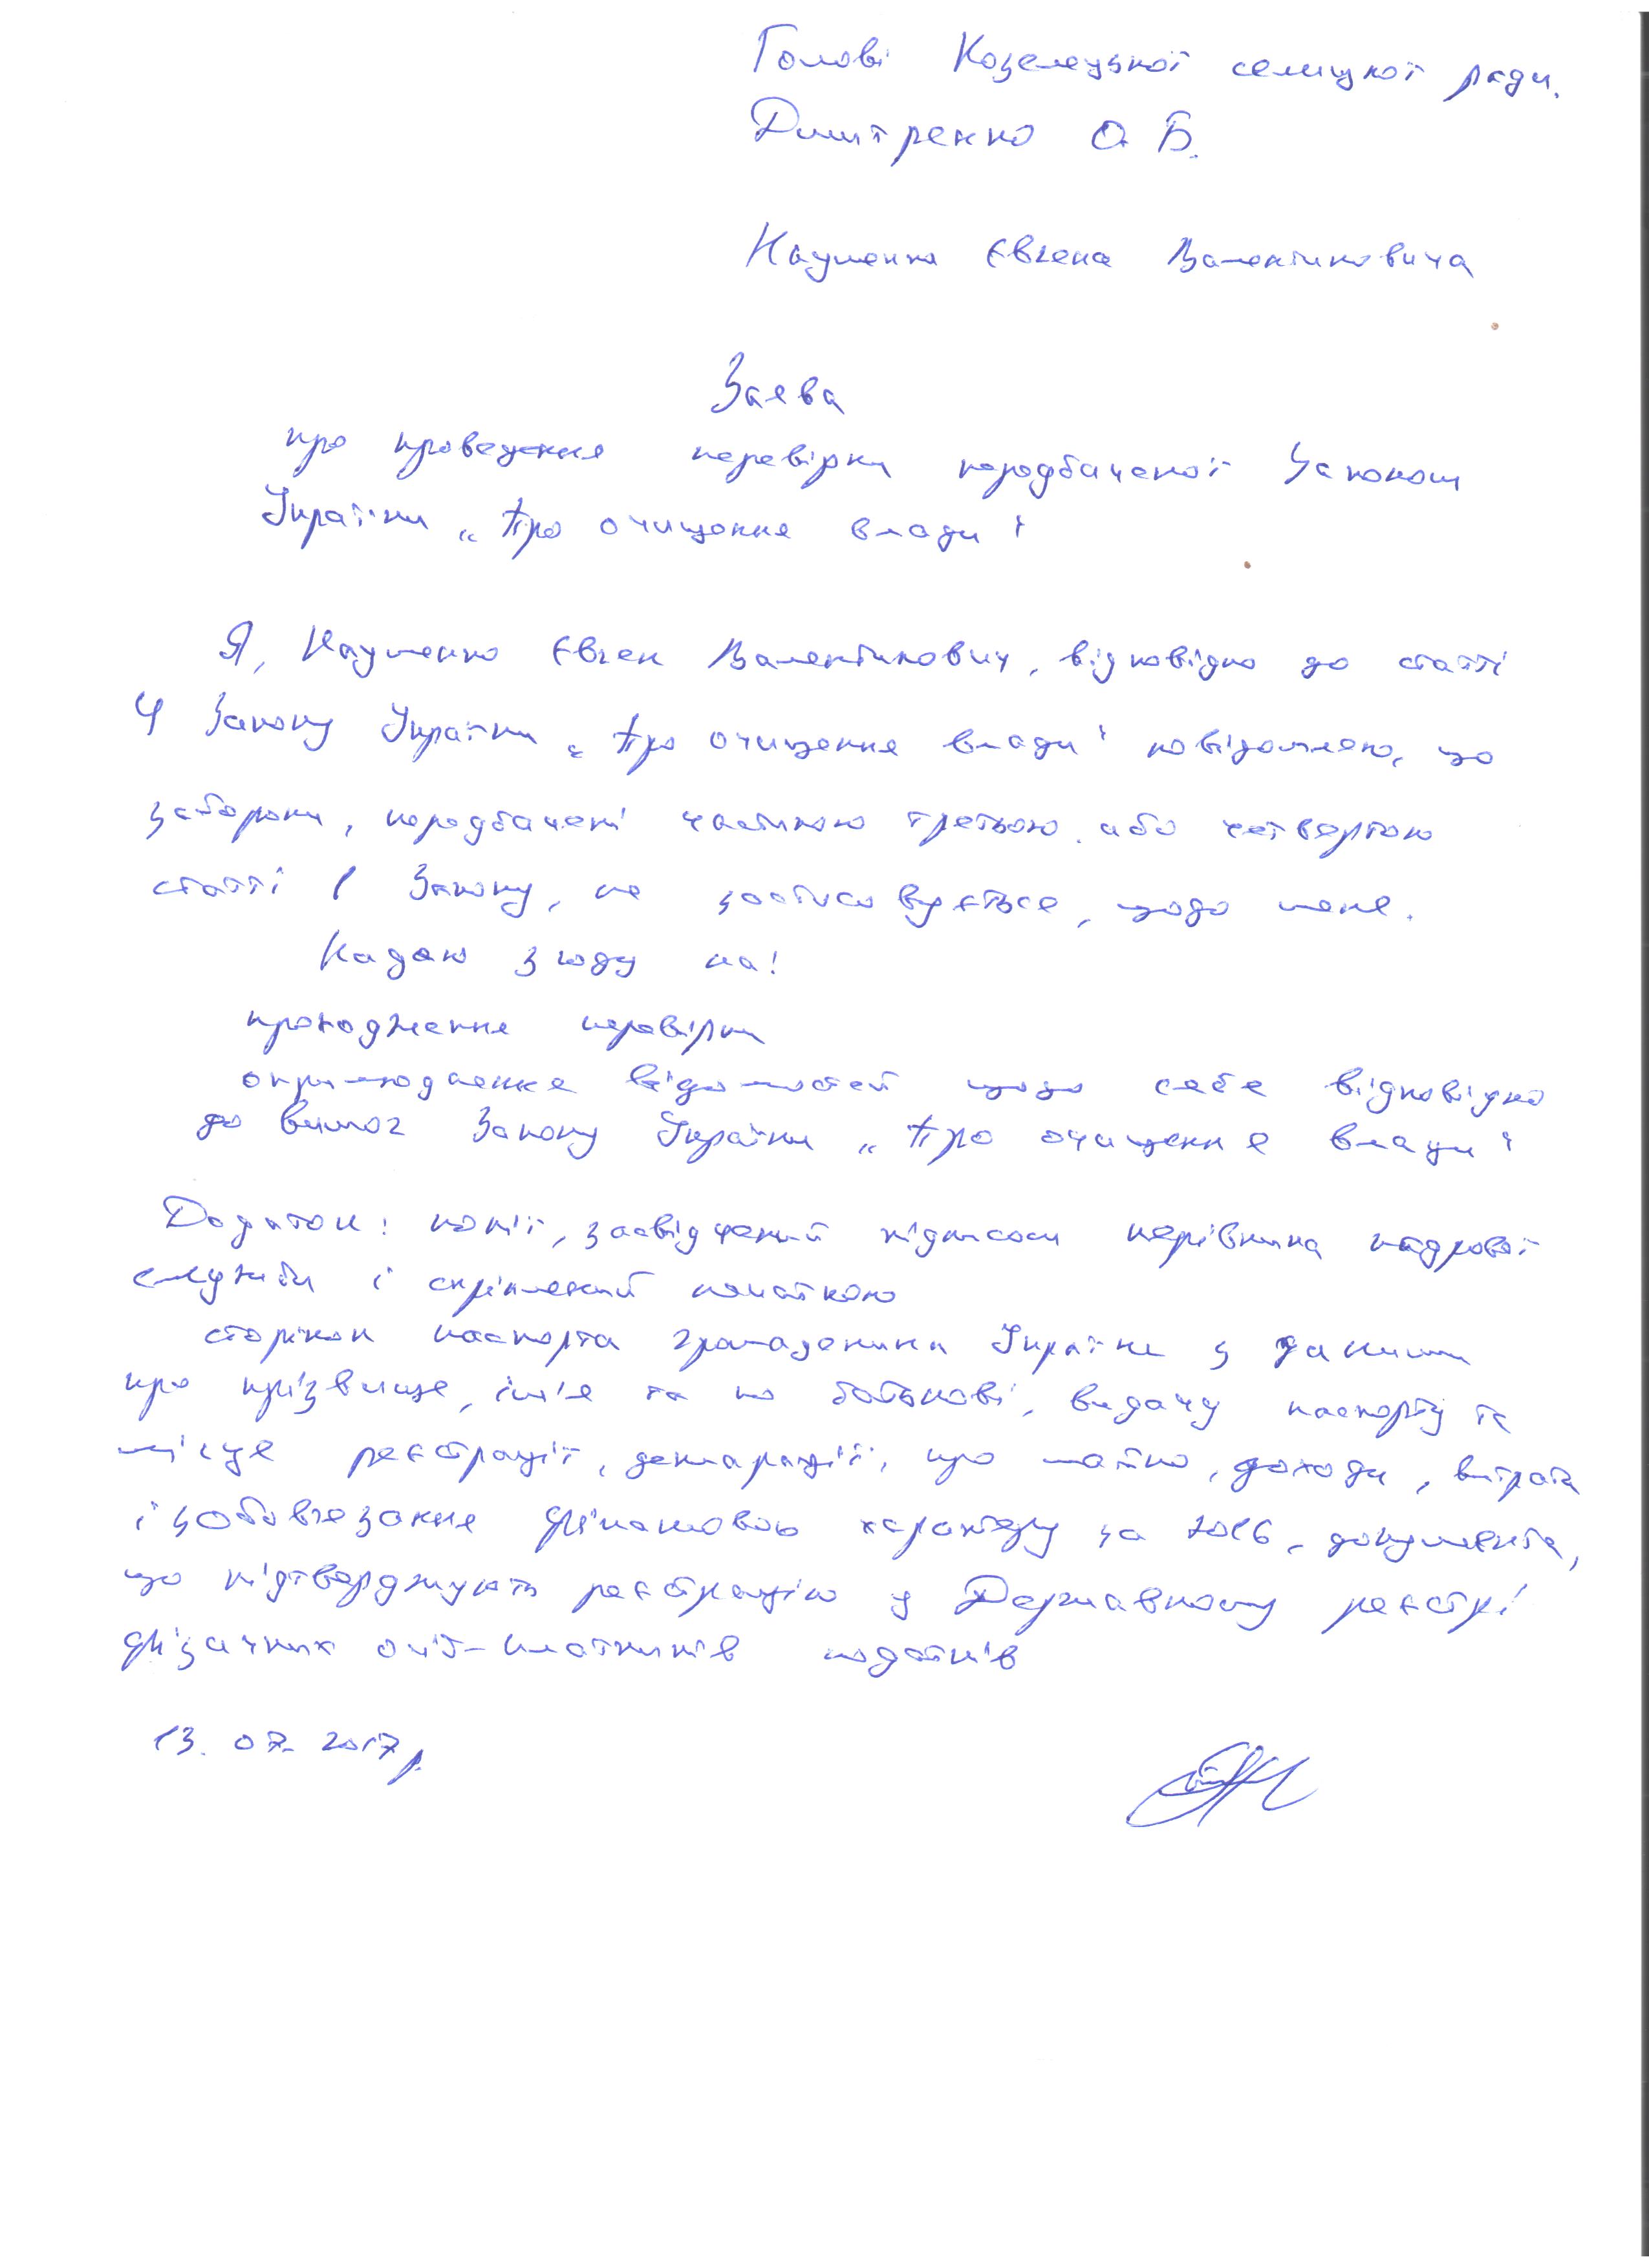 Голові Козелецької селищної ради.
Дмитренко О. Б.
Науменка Євгена Валентиновича
Заява
про проведення перевірки передбаченої Законом
України „Про очищення влади"
Я, Науменко Євген Валентинович, відповідно до статті
4 Закону України „Про очищення влади" повідомляю, що
заборони, передбачені частиною третьою або четвертою
статті 1 Закону, не застосовується, щодо мене.
Надаю згоду на:
проходження перевірки
оприлюднення відомостей щодо себе відповідно
до вимог Закону України „Про очищення влади"
Додаток: копії, засвідчений підписом керівника кадрової
служби і скріплений печаткою
сторінок паспорта громадянина України з даними
про прізвище, ім'я та по батькові, видачу паспорту та
місце реєстрації, декларації, про майно, доходи, витрати
і зобов'язання фінансового характеру за 2016, документа,
що підтверджують реєстрацію у Державному реєстрі
фізичних осіб-платників податків
13. 07. 2017р.